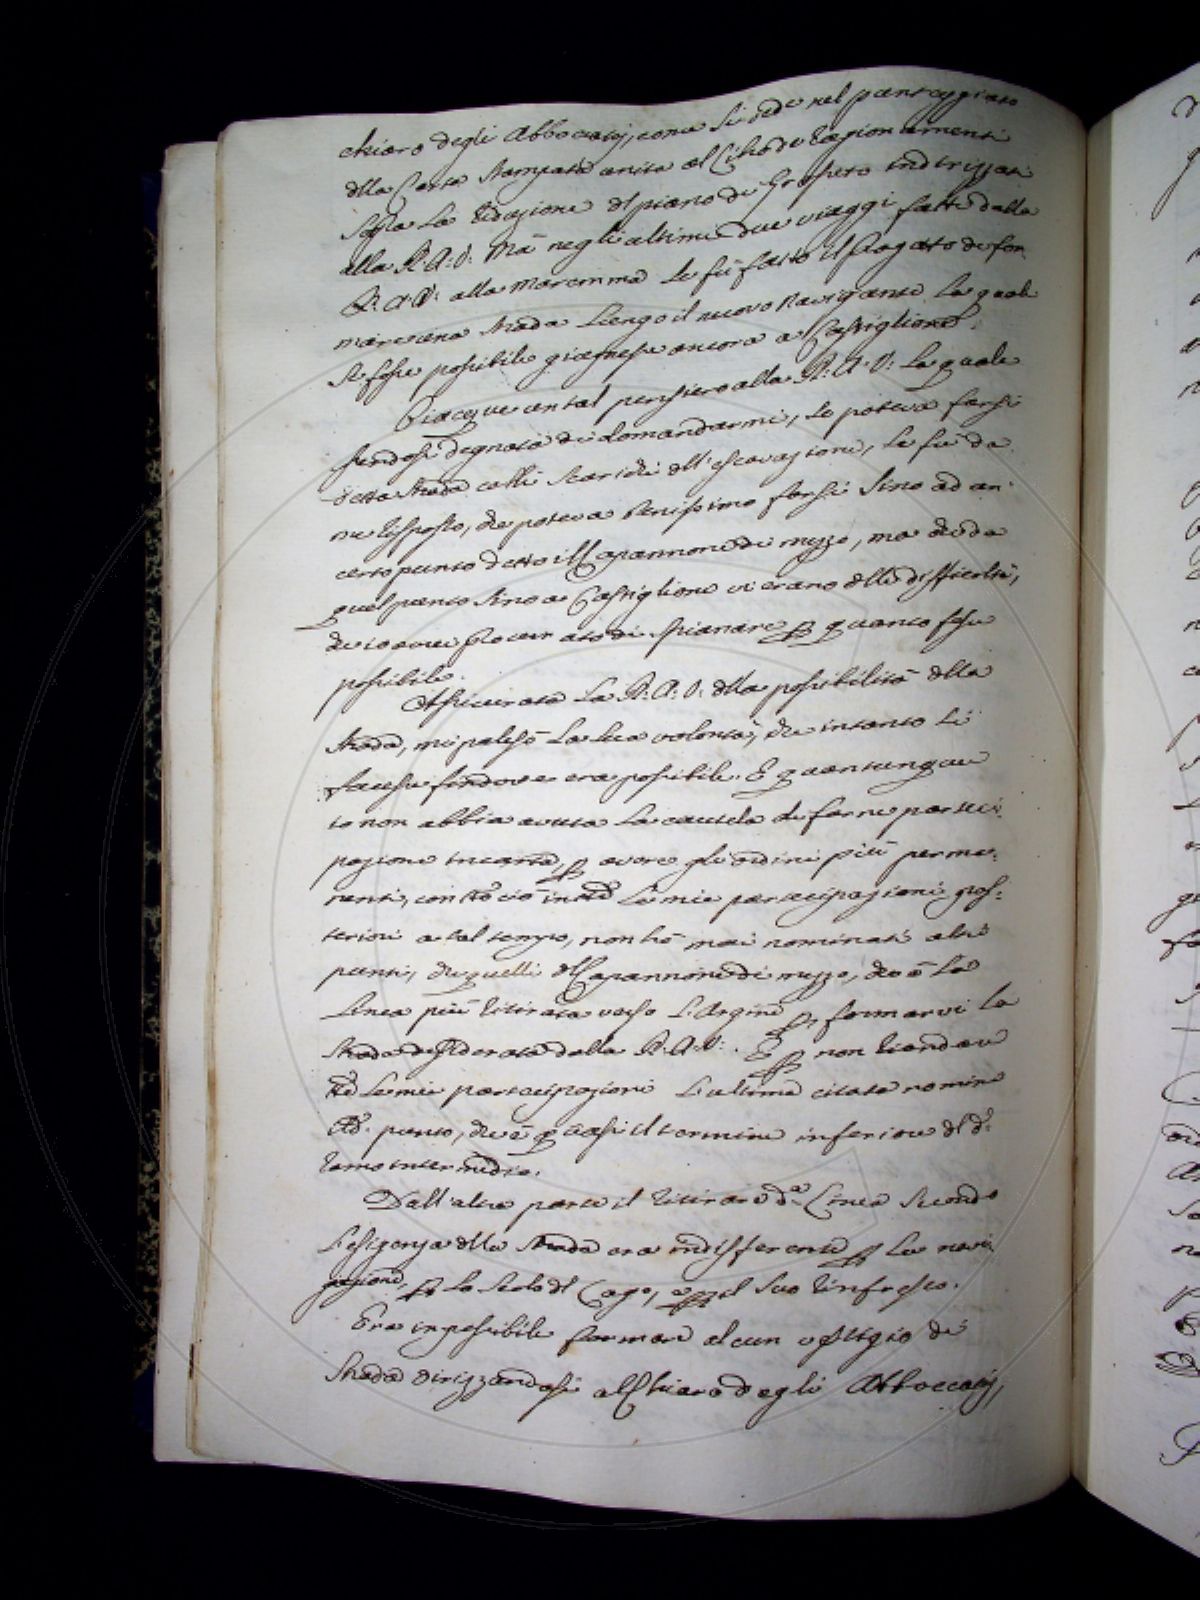 chiaro degli Abboccatoj, come si vede nel punteggiato
della Carta stampata unita al Libro de Ragionamenti
sopra la Relazione del piano di Grosseto indirizzati
alla R: A: V: Mà negli ultimi due viaggi fatti dalla
R: A: V: alla maremma le fù fatto il Progetto di for=
mare una strada lungo il nuovo Navigante la quale
se fosse possibile giugnesse ancora a Castiglione.
Piacque un tal pensiero alla R: A: V: la quale
sendosi degnata di domandarmi, se poteva farsi
detta strada colli scarichi dell'escavazione, le fù da
me risposto, che poteva benissimo farsi sino ad un
certo punto detto il Capannone di mezzo, ma che da
quel punto sino a Castiglione vi erano delle difficoltà,
che io avrei procurato di spianare per quanto fosse
possibile.
Assicurata la R: A: V: della possibilità della
strada, mi palesò la sua volontà, che intanto si
facesse sin dove era possibile. E quantunque
io non abbia avuta la cautela di farne parteci=
pazione in carta, per avere gli ordini più perma=
nenti, con tto ciò in tte le mie partecipazioni pos=
teriori a tal tempo, non hò mai nominati altri
punti, che quelli del Capannone di mezzo, che è la
linea più ritirata verso l'Argine per formarvi la
strada desiderata dalla R: A: V: . E per non
tte le mie partecipazioni l'ultima citata nomina
punto, che è quasi il termine inferiore del d:
ramo intermedio.
Dall'altra parte il ritirare da Linea secondo
l'esigenza della strada era indifferente per la navi=
gazione, per lo scolo del Lago, e per il suo rinfresco.
Era impossibile formare alcun vestigio di
strada dirizzandosi al Chiaro degli Abboccatoj,